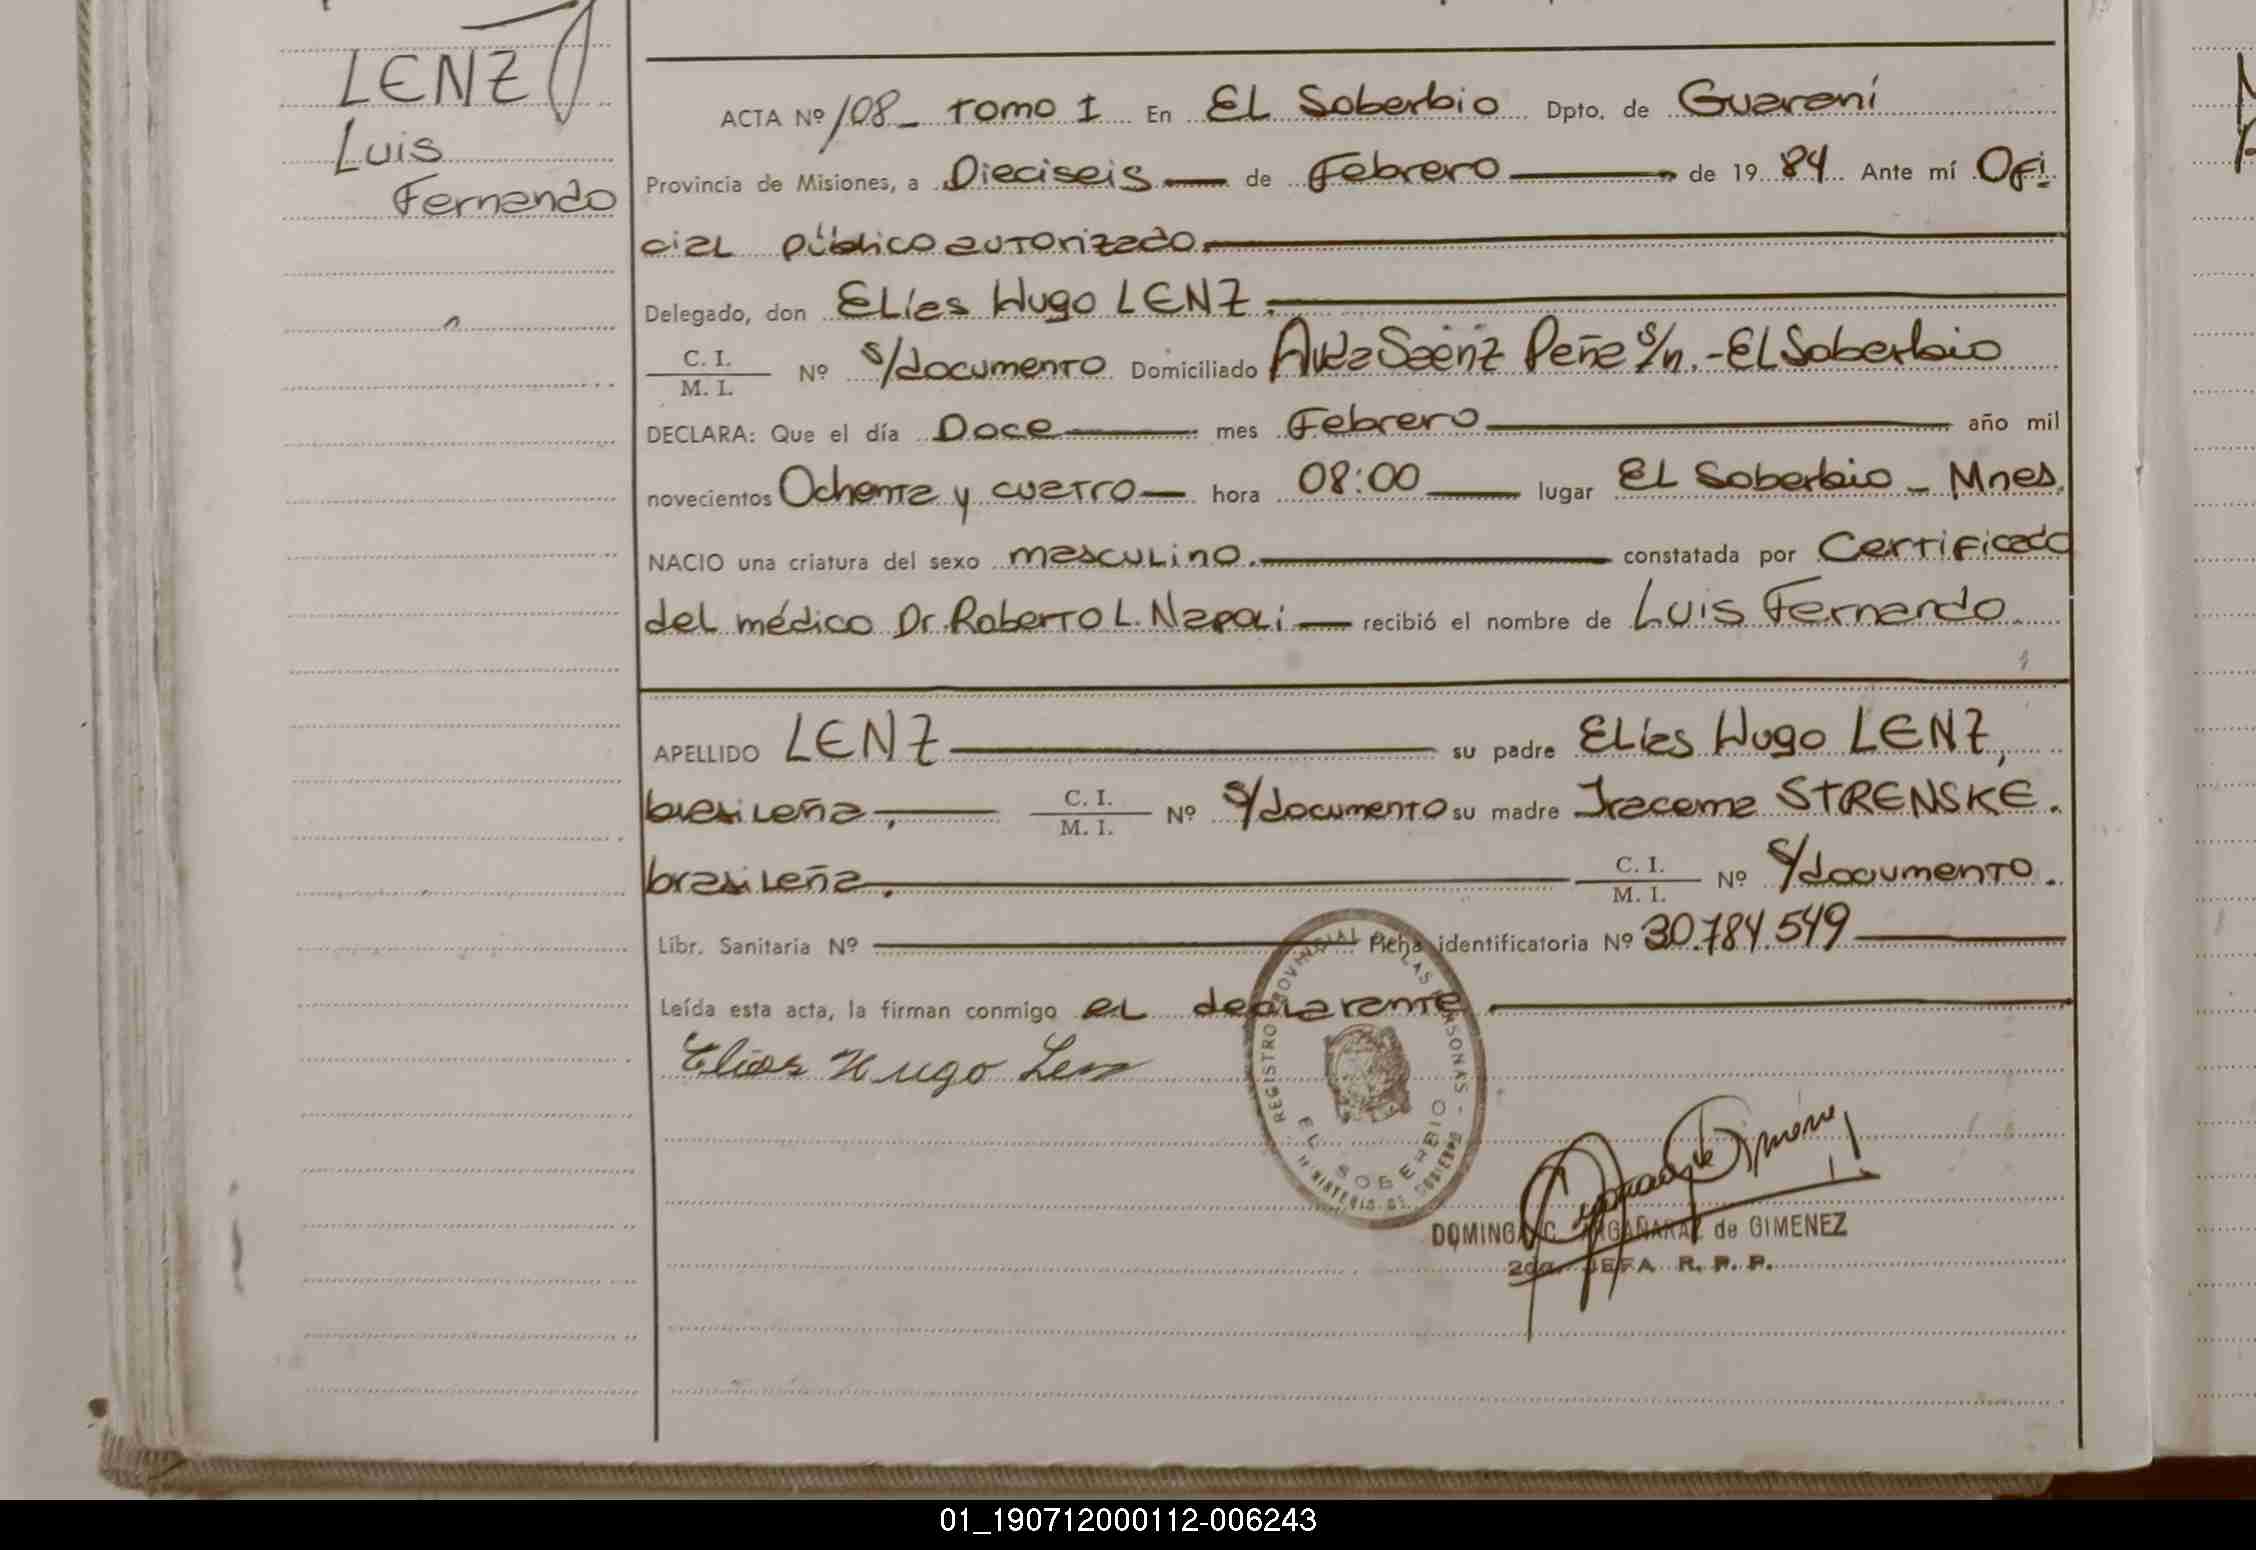 LENZ
Luis
Fernando
ACTA Nº 108 - Tomo I En EL Soberbio Dpto. de Guaraní
Provincia de Misiones, a Dieciseis — de Febrero — de 19 84 Ante mí Ofi-
cial público autorizado.
Delegado, don Elías Hugo LENZ.
C. I. / M. I. Nº s/documento Domiciliado Avda Saenz Peña s/n.- EL Soberbio
DECLARA: Que el día Doce — mes Febrero — año mil
novecientos Ochenta y cuatro — hora 08:00 — lugar EL Soberbio - Mnes.
NACIO una criatura del sexo masculino. — constatada por Certificado
del médico Dr. Roberto L. Napoli — recibió el nombre de Luis Fernando
APELLIDO LENZ — su padre Elías Hugo LENZ,
brasileña. — C. I. / M. I. Nº s/documento su madre Iracema STRENSKE.
brasileña. — C. I. / M. I. Nº s/documento.
Libr. Sanitaria Nº — Ficha identificatoria Nº 30.784.549 —
Leída esta acta, la firman conmigo el declarante —
Elias Hugo Lenz
REGISTRO PROVINCIAL DE LAS PERSONAS -
EL SOBERBIO
MINISTERIO DE GOBIERNO
DOMINGA C. ARGAÑARAZ de GIMENEZ
2da. JEFA R. P. P.
01_190712000112-006243